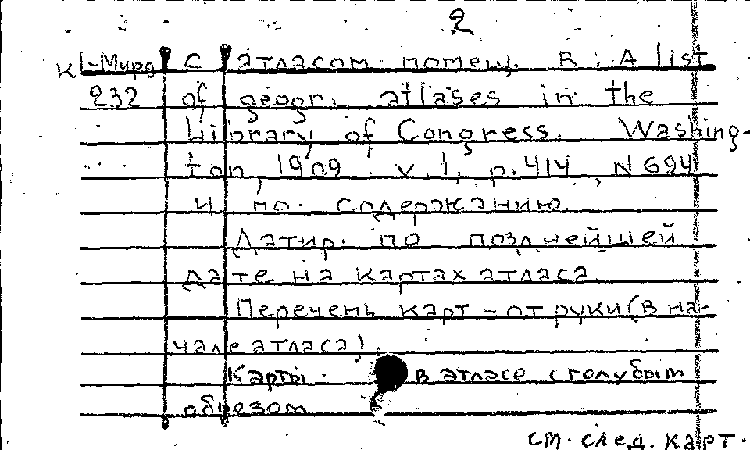 2
К 1-Мира с атласом помещ. в: A list
232 of geogr. atlases in the
Library of Congress. Washing-
ton, 1909. v. 1, p. 414, N 694
и по содержанию.
Датир. по позднейшей
дате на картах атласа.
Перечень карт - от руки (в на-
чале атласа).
Карты в атласе с голубым
обрезом
см. след. карт.